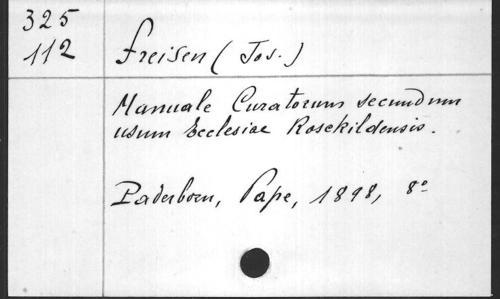 325
112
Freisen (Jos.)
Manuale Curatorum secundum
usum Ecclesiae Rosekildensis.
Paderborn, Pape, 1898, 8º